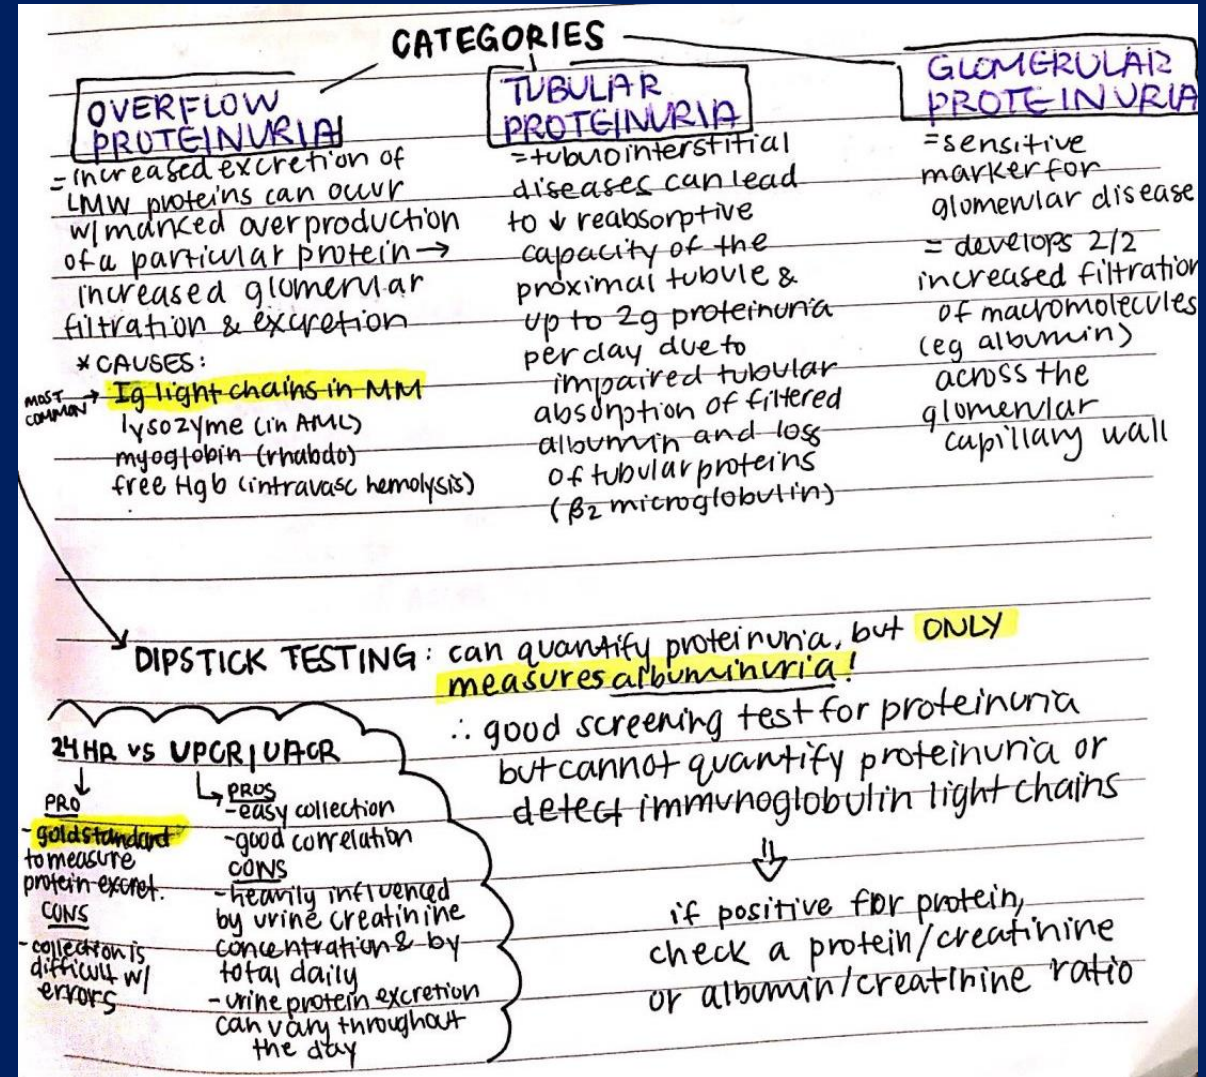 CATEGORIES
OVERFLOW
PROTEINURIA
= increased excretion of
LMW proteins can occur
w/ marked overproduction
of a particular protein →
increased glomerular
filtration & excretion
* CAUSES:
MOST
COMMON → Ig light chains in MM
lysozyme (in AML)
myoglobin (rhabdo)
free Hgb (intravasc hemolysis)
TUBULAR
PROTEINURIA
= tubulointerstitial
diseases can lead
to ↓ reabsorptive
capacity of the
proximal tubule &
up to 2g proteinuria
per day due to
impaired tubular
absorption of filtered
albumin and loss
of tubular proteins
(β2 microglobulin)
GLOMERULAR
PROTEINURIA
= sensitive
marker for
glomerular disease
= develops 2/2
increased filtration
of macromolecules
(eg albumin)
across the
glomerular
capillary wall
DIPSTICK TESTING: can quantify proteinuria, but ONLY
measures albuminuria!
∴ good screening test for proteinuria
but cannot quantify proteinuria or
detect immunoglobulin light chains
⇓
if positive for protein,
check a protein/creatinine
or albumin/creatinine ratio
24 HR vs UPCR/UACR
PRO
- gold standard
to measure
protein excret.
CONS
- collection is
difficult w/
errors
PROS
- easy collection
- good correlation
CONS
- heavily influenced
by urine creatinine
concentration & by
total daily
- urine protein excretion
can vary throughout
the day